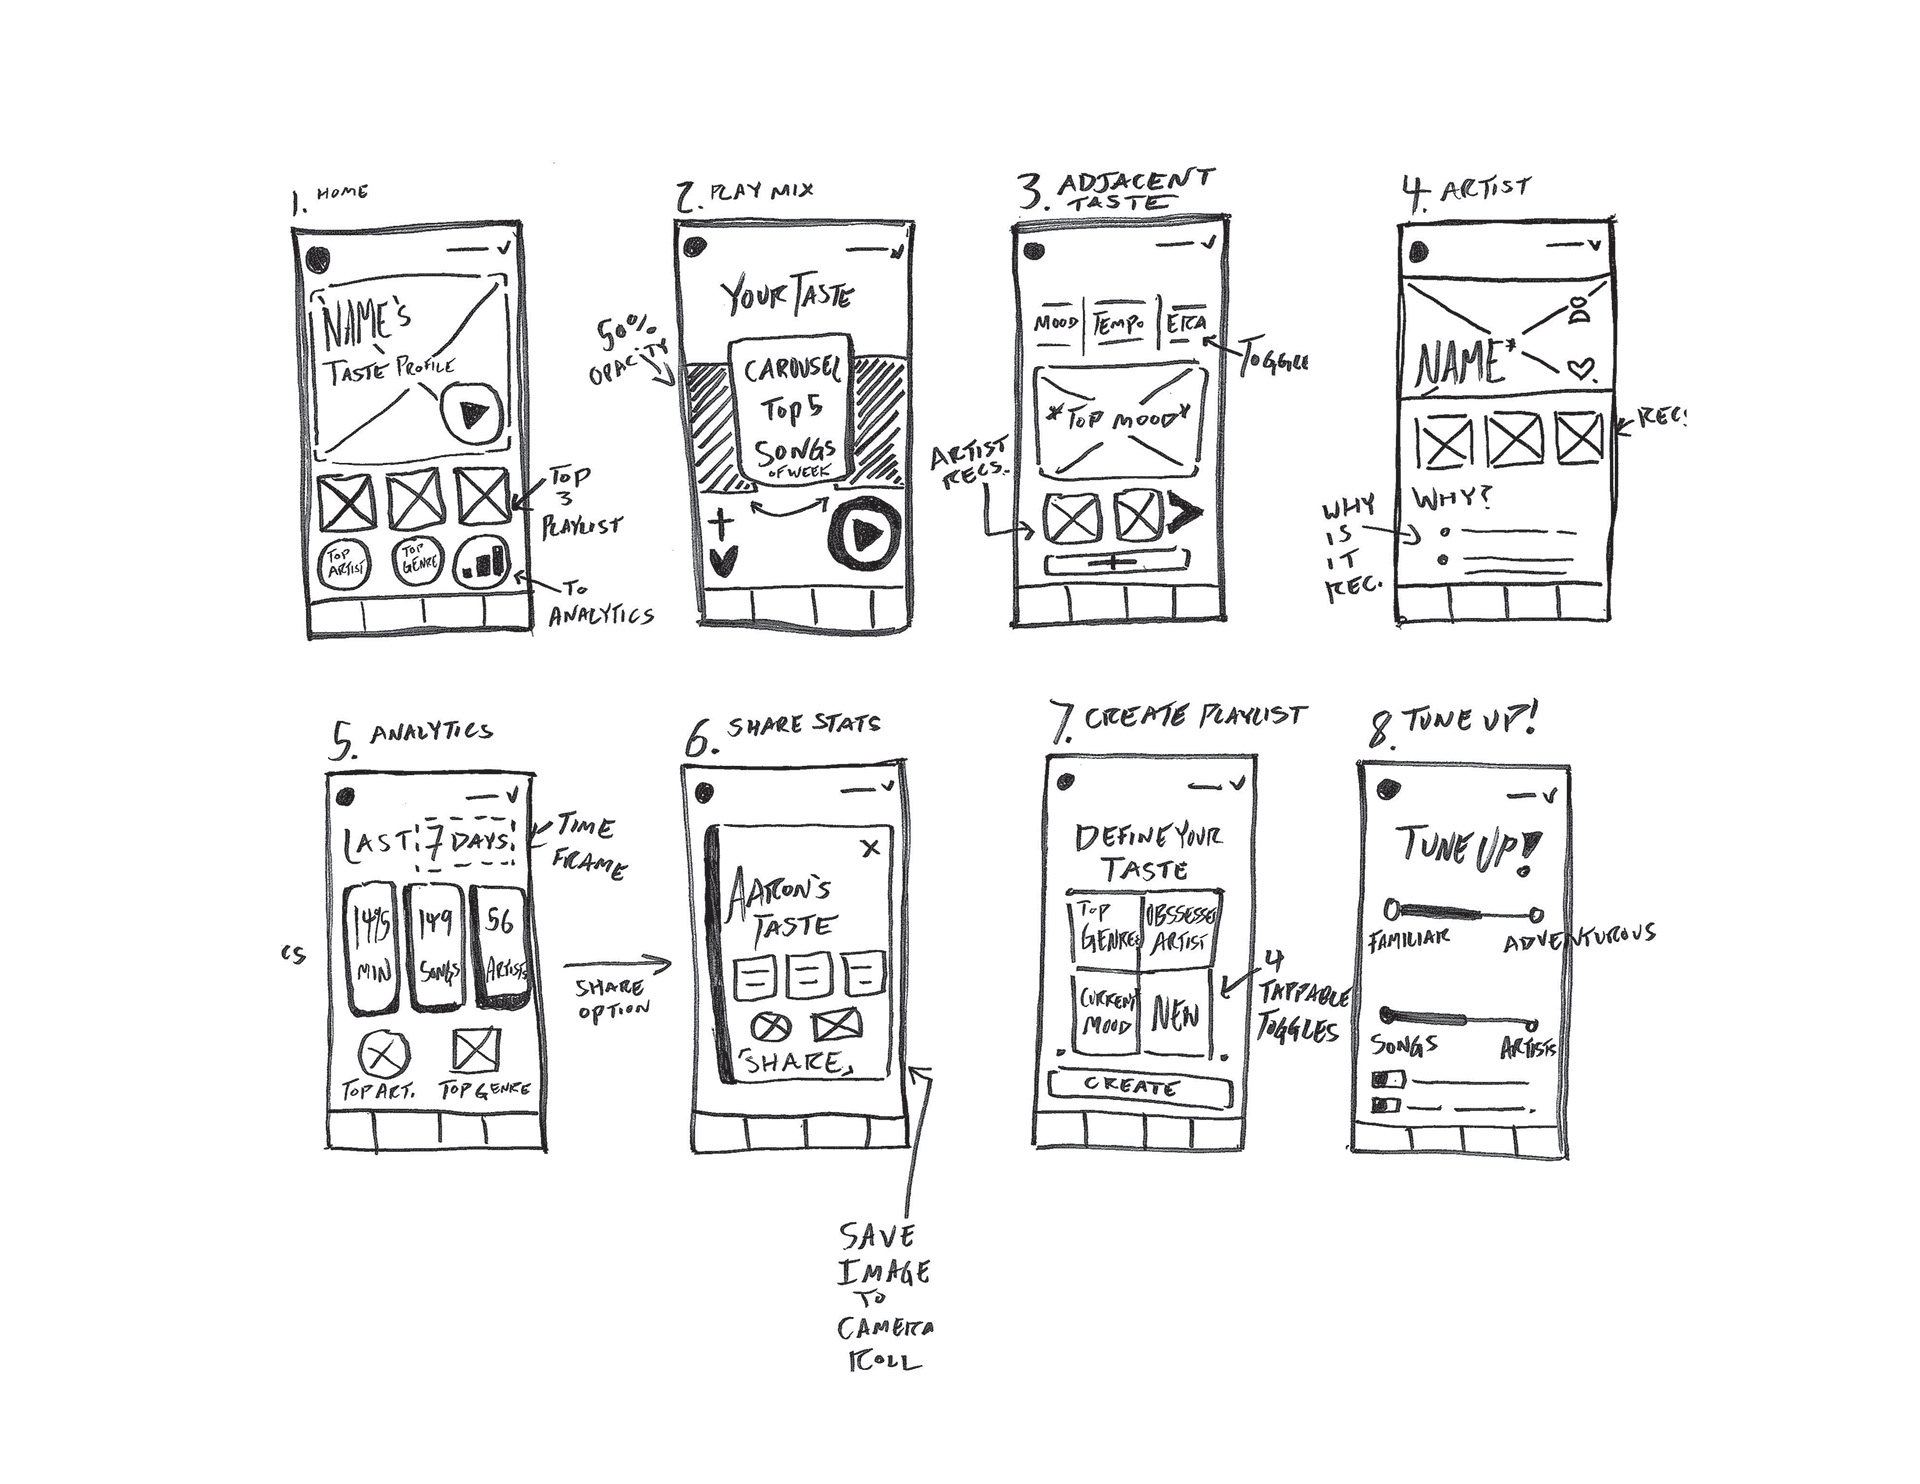 1. HOME
NAME'S
TASTE PROFILE
TOP
3
PLAYLIST
TOP
ARTIST
TOP
GENRE
TO
ANALYTICS
2. PLAY MIX
YOUR TASTE
50%
OPACITY
CAROUSEL
TOP 5
SONGS
OF WEEK
+
3. ADJACENT
TASTE
MOOD
TEMPO
ERA
TOGGLE
*TOP MOOD*
ARTIST
RECS.
+
4. ARTIST
NAME*
REC.
WHY?
WHY
IS
IT
REC.
5. ANALYTICS
LAST 7 DAYS
TIME
FRAME
CS
1495
MIN
149
SONGS
56
ARTISTS
TOP ART.
TOP GENRE
SHARE
OPTION
6. SHARE STATS
X
AARON'S
TASTE
SHARE
SAVE
IMAGE
TO
CAMERA
ROLL
7. CREATE PLAYLIST
DEFINE YOUR
TASTE
TOP
GENRES
OBSSESSED
ARTIST
CURRENT
MOOD
NEW
4
TAPPABLE
TOGGLES
CREATE
8. TUNE UP!
TUNE UP!
FAMILIAR
ADVENTUROUS
SONGS
ARTISTS